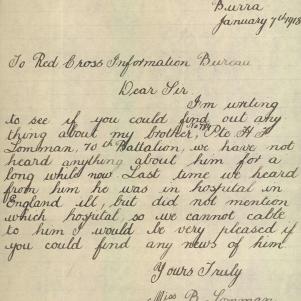 Burra
January 7th 1918
To Red Cross Information Bureau
Dear Sir.
I'm writing
to see if you could find out any
thing about my brother, Pte H
70th Battalion, we have not
heard anything about him for a
long while now Last time we heard
from him he was in hospital in
England ill, but did not mention
which hospital, so we cannot cable
to him I would be very pleased if
you could find any news of him.
Yours Truly
Miss B.